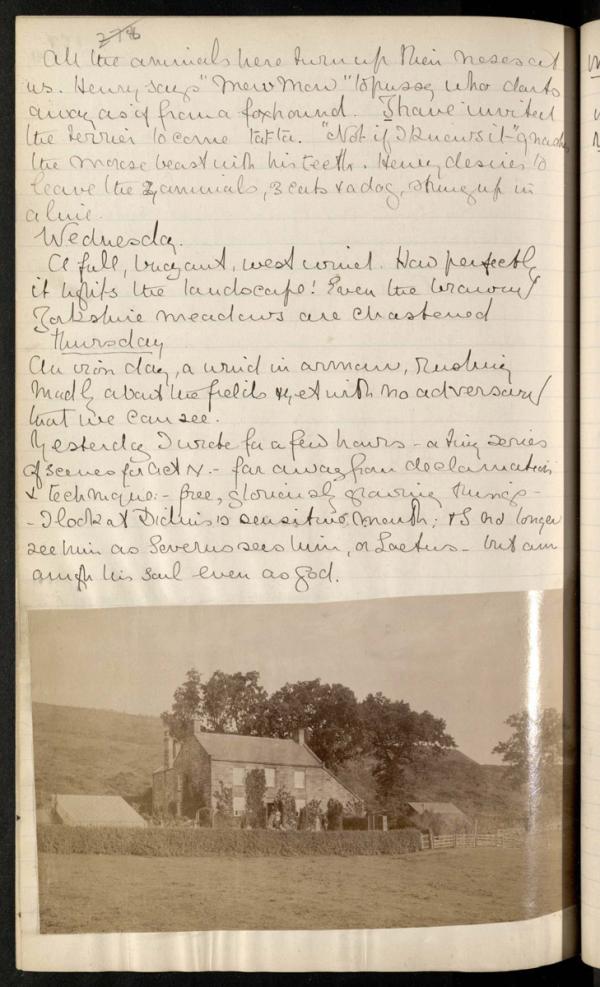 All the animals here turn up their noses at
us. Henry says "Mew Mew" to pussy who darts
away as if from a foxhound. I have invited
the terrier to come ta-ta. "Not if I knows it" gnashes
the morose beast with his teeth. Henry desires to
leave the animals, 3 cats & a dog, strung up in
a line.
Wednesday.
A full, buoyant, west wind. How perfectly
it the landscape! Even the brawny
Yorkshire meadows are chastened
Thursday
An iron day, a wind in armour, rushing
madly about the fields & yet with no adversary
that we can see.
Yesterday I wrote for a few hours - a tiny series
of scenes for Act IV. - far away from declamation
& technique - free, gloriously growing things -
- I look at Didius's sensitive mouth; & I no longer
see him as Severus sees him, or Laetus - but am
his soul even as god.